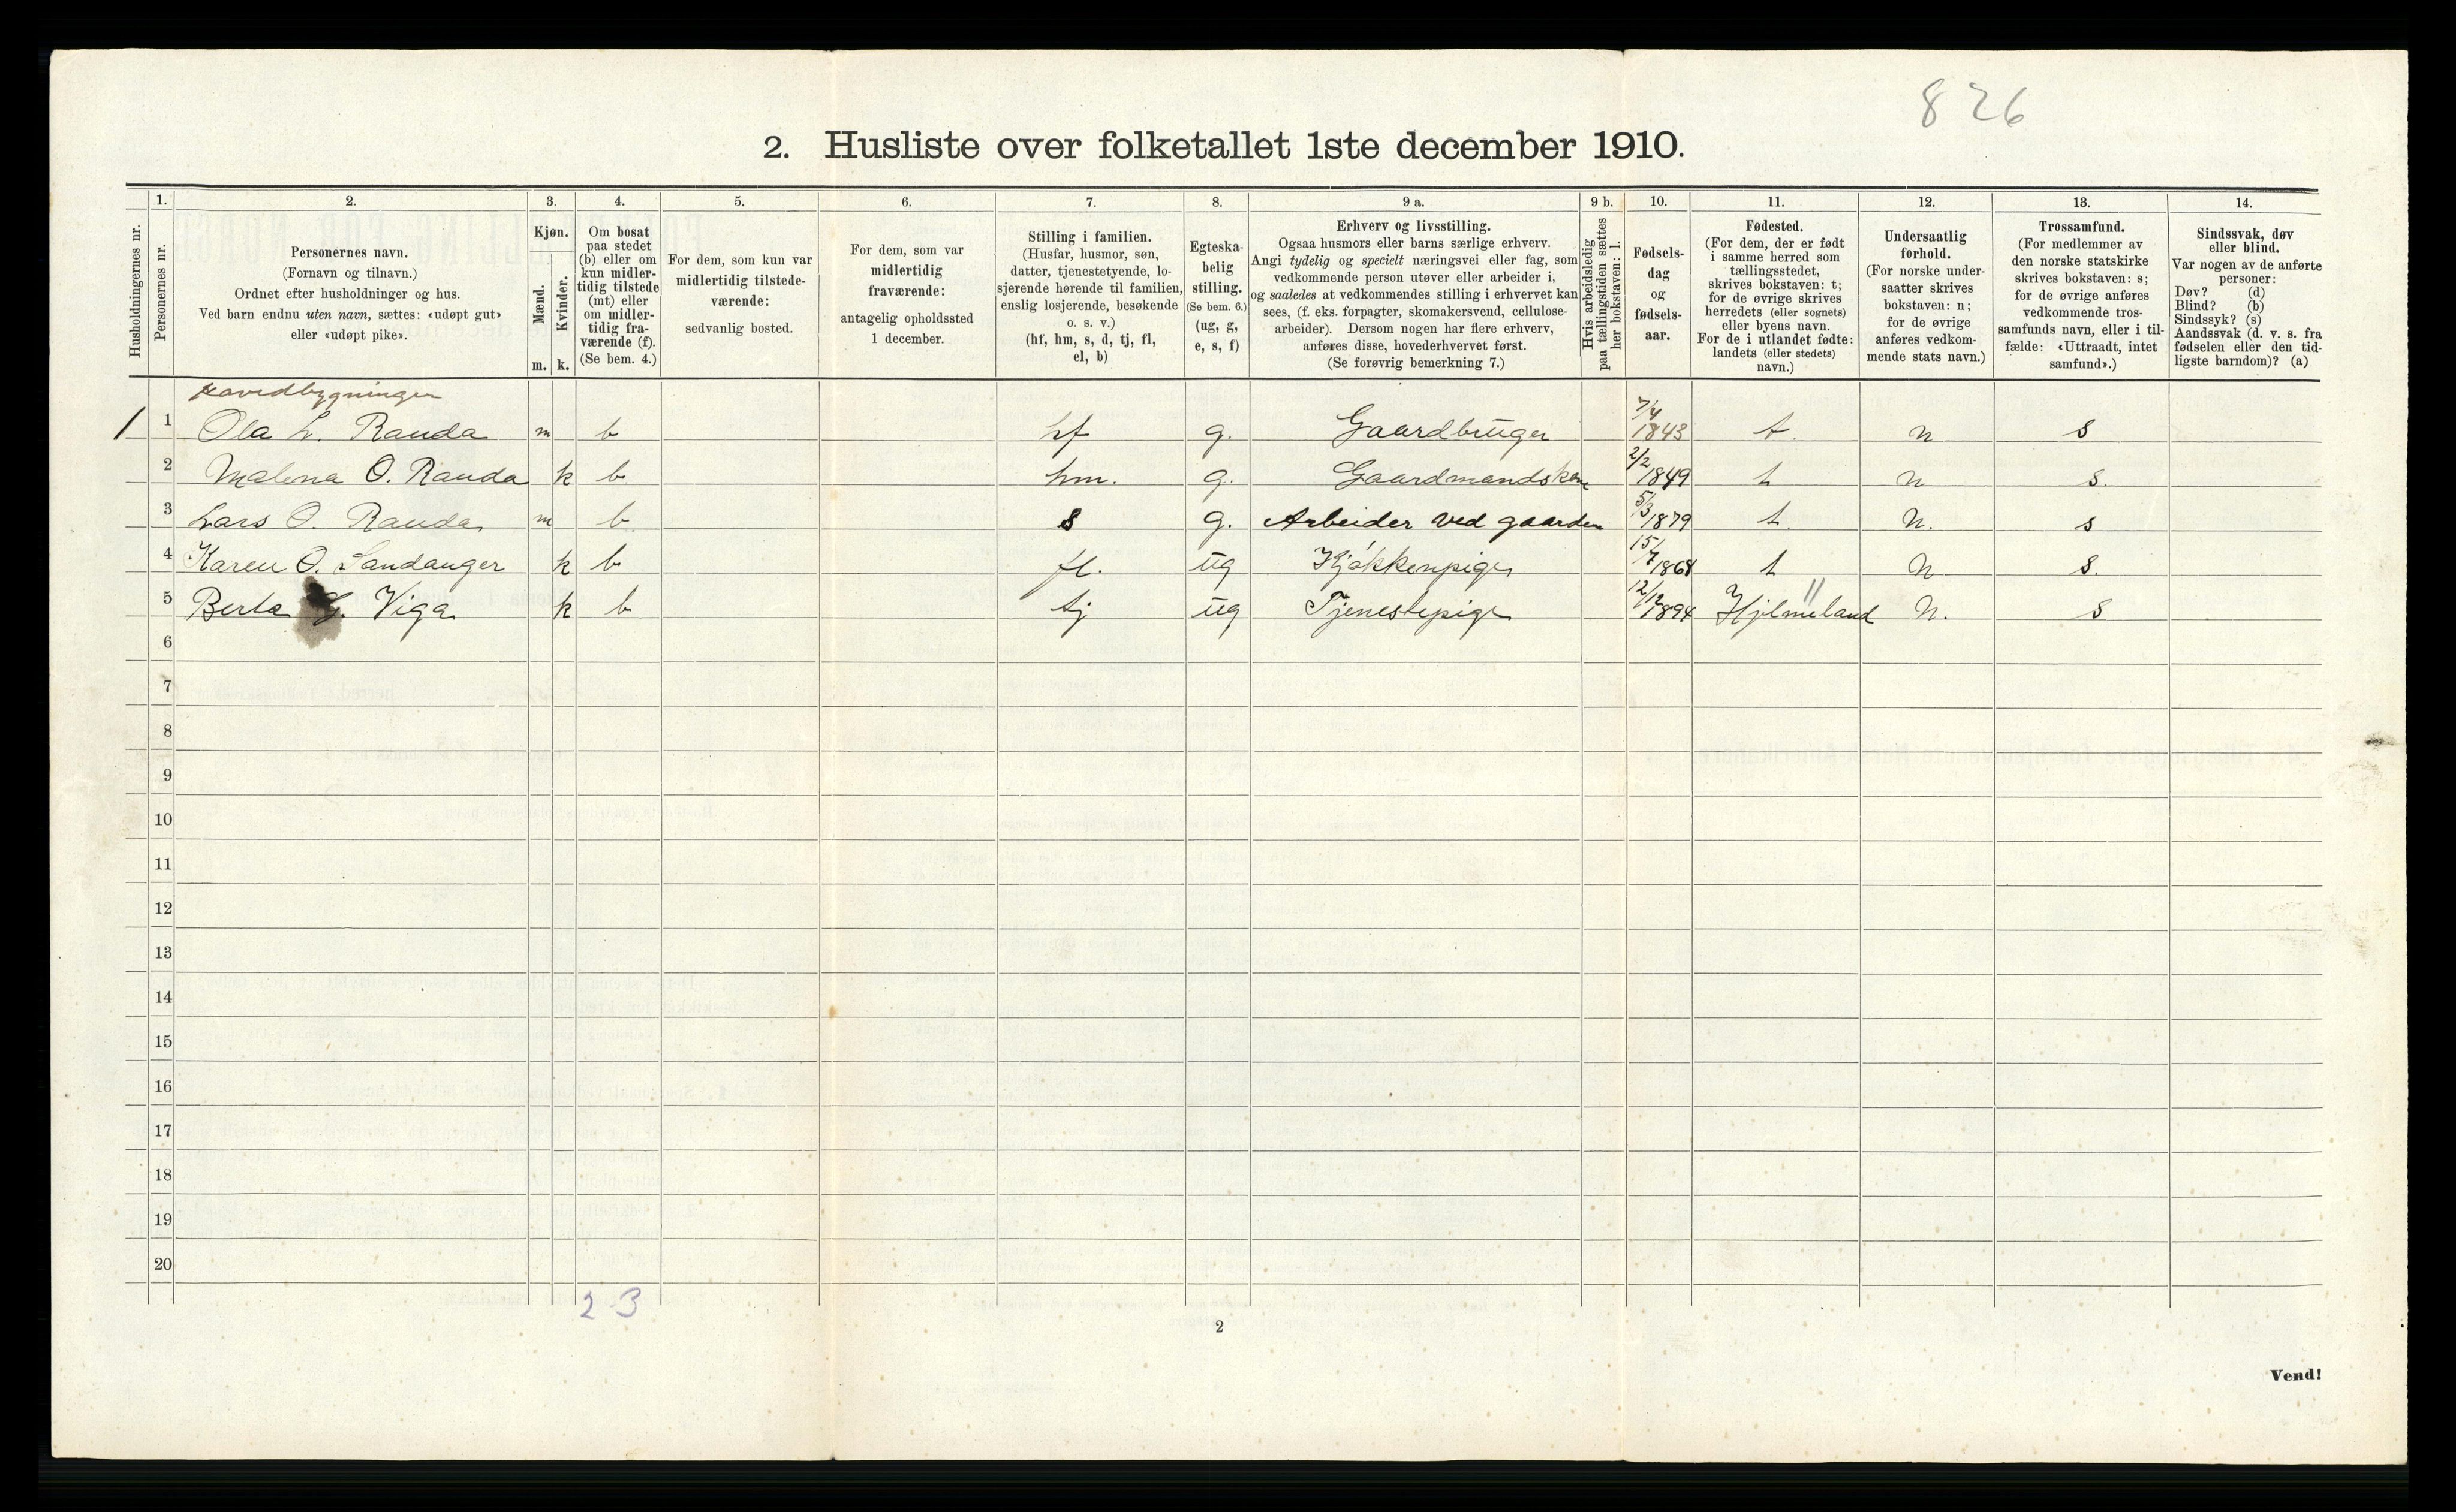 826
2. Husliste over folketallet 1ste december 1910.
Husholdningernes nr.
1.
Personernes nr.
2.
Personernes navn.
(Fornavn og tilnavn.)
Ordnet efter husholdninger og hus.
Ved barn endnu uten navn, sættes: «udøpt gut»
eller «udøpt pike».
3.
Kjøn.
Mænd.
m.
Kvinder.
k.
4.
Om bosat
paa stedet
(b) eller om
kun midler-
tidig tilstede
(mt) eller
om midler-
tidig fra-
værende (f).
(Se bem. 4.)
5.
For dem, som kun var
midlertidig tilstede-
værende:
sedvanlig bosted.
6.
For dem, som var
midlertidig
fraværende:
antagelig opholdssted
1 december.
7.
Stilling i familien.
(Husfar, husmor, søn,
datter, tjenestetyende, lo-
sjerende hørende til familien,
enslig losjerende, besøkende
o. s. v.)
(hf, hm, s, d, tj, fl,
el, b)
8.
Egteska-
belig
stilling.
(Se bem. 6.)
(ug, g,
e, s, f)
9 a.
Erhverv og livsstilling.
Ogsaa husmors eller barns særlige erhverv.
Angi tydelig og specielt næringsvei eller fag, som
vedkommende person utøver eller arbeider i,
og saaledes at vedkommendes stilling i erhvervet kan
sees, (f. eks. forpagter, skomakersvend, cellulose-
arbeider). Dersom nogen har flere erhverv,
anføres disse, hovederhvervet først.
(Se forøvrig bemerkning 7.)
9 b.
Hvis arbeidsledig
paa tællingstiden sættes
her bokstaven: l.
10.
Fødsels-
dag
og
fødsels-
aar.
11.
Fødested.
(For dem, der er født
i samme herred som
tællingsstedet,
skrives bokstaven: t;
for de øvrige skrives
herredets (eller sognets)
eller byens navn.
For de i utlandet fødte:
landets (eller stedets)
navn.)
12.
Undersaatlig
forhold.
(For norske under-
saatter skrives
bokstaven: n;
for de øvrige
anføres vedkom-
mende stats navn.)
13.
Trossamfund.
(For medlemmer av
den norske statskirke
skrives bokstaven: s;
for de øvrige anføres
vedkommende tros-
samfunds navn, eller i til-
fælde: «Uttraadt, intet
samfund».)
14.
Sindssvak, døv
eller blind.
Var nogen av de anførte
personer:
Døv? (d)
Blind? (b)
Sindssyk? (s)
Aandssvak (d. v. s. fra
fødselen eller den tid-
ligste barndom)? (a)
Hovedbygningen
1 1 Ola L. Randa m b hf g. Gaardbruger 7/4 1843 t. n s
2 Malena O. Randa k b hm. g. Gaardmandskone 2/2 1849 t n s.
3 Lars O. Randa m b s g. Arbeider ved gaarden 5/3 1879 t. n. s
4 Karen O. Sandanger k b fl. ug Kjøkkenpige 15/7 1868 t n s.
5 Berta Viga k b tj ug Tjenestepige 12/12 1894 Hjelmeland n. s
6
7
8
9
10
11
12
13
14
15
16
17
18
19
20
2 3
2
Vend!